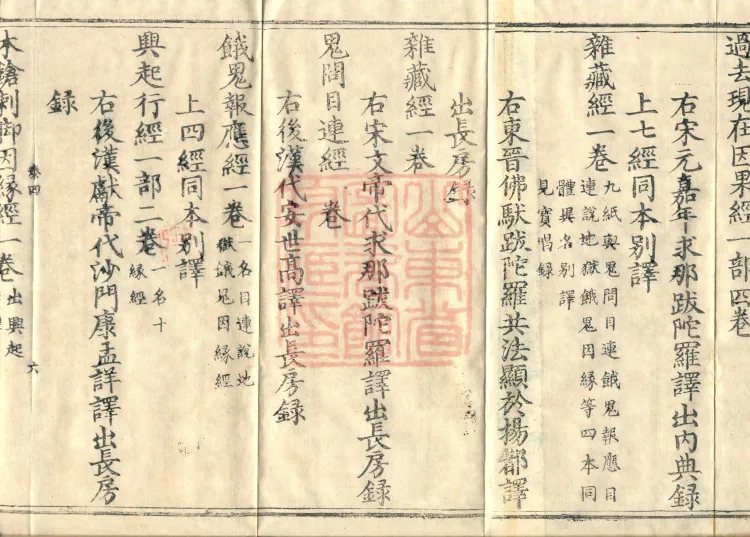 過去現在因果經一部四卷
右宋元嘉年求那跋陀羅譯出內典録
上七經同本別譯
雜藏經一卷
九紙與鬼問目連餓鬼報應目
連說地獄餓鬼因緣等四本同
體異名別譯
見寶唱録
右東晉佛馱跋陀羅共法顯於揚都譯
出長房録
雜藏經一卷
右宋文帝代求那跋陀羅譯出長房録
鬼問目連經一卷
右後漢代安世高譯出長房録
餓鬼報應經一卷
一名目連說地
獄餓鬼因緣經
上四經同本別譯
興起行經一部二卷
一名十
緣經
右後漢獻帝代沙門康孟詳譯出長房
録
四 六
木鎗刺脚因緣經一卷
出興起